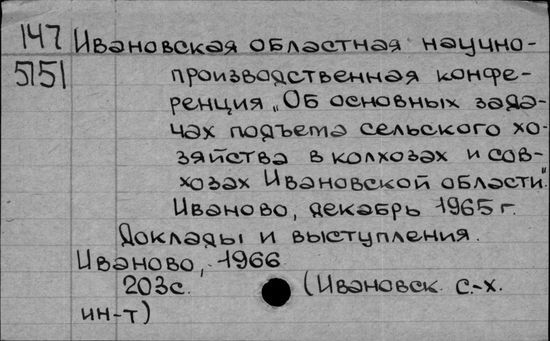 147 Ивановская областная научно-
5151 производственная конфе-
ренция „Об основных зада-
чах подъема сельского хо-
зяйства в колхозах и сов-
хозах Ивановской области."
Иваново, декабрь 1965 г.
Доклады и выступления.
Иваново, 1966
203с. (Ивановск. с.-х.
ин-т)